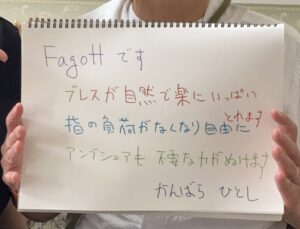 Fagott です
ブレスが自然で楽にいっぱい
とれます
指の負荷がなくなり自由に
アンブシュアも 不要な力がぬけます
かんばら ひとし